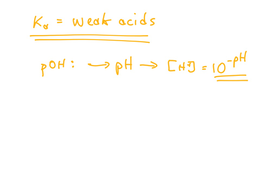 Ka = weak acids
pOH: → pH → [H⁺] = 10^-pH